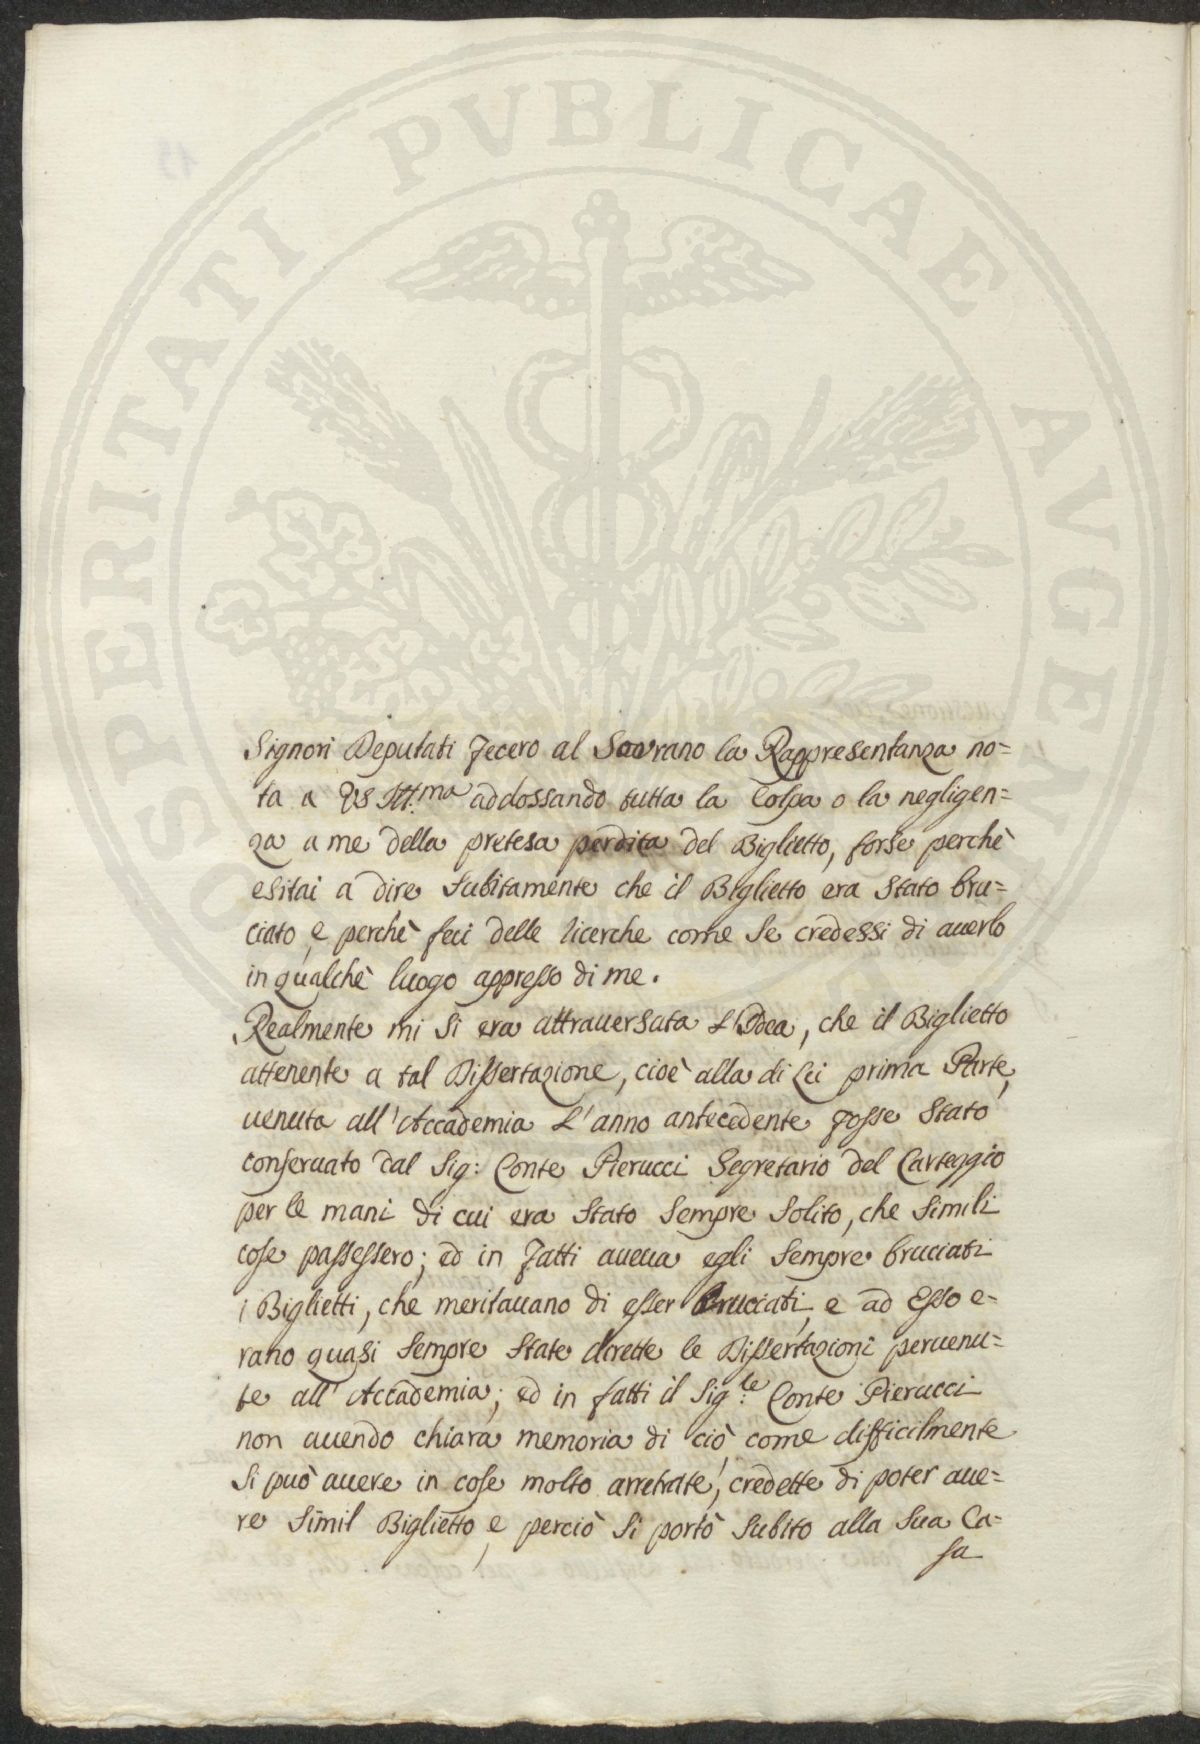 PROSPERITATI PVBLICAE AVGENDAE
Signori Deputati fecero al Sovrano la Rappresentanza no=
ta a VS Ill.ma addossando tutta la Colpa o la negligen=
za a me della pretesa perdita del Biglietto, forse perchè
esitai a dire subitamente che il Biglietto era stato bru=
ciato, e perchè feci delle ricerche come se credessi di auerlo
in qualche luogo appresso di me.
Realmente mi si era attrauersata l'Idea, che il Biglietto
attenente a tal Dissertazione, cioè alla di lei prima Parte,
uenuta all'Accademia l'anno antecedente fosse stato
conseruato dal Sig: Conte Pierucci Segretario del Carteggio
per le mani di cui era stato sempre solito, che simili
cose passessero; ed in fatti aueua egli sempre bruciati
i Biglietti, che meritauano di esser bruciati, e ad Esso e=
rano quasi sempre state dirette le Dissertazioni peruenu=
te all'Accademia; ed in fatti il Sig.le Conte Pierucci
non auendo chiara memoria di ciò, come difficilmente
si può auere in cose molto arretrate, credette di poter aue=
re simil Biglietto, e perciò si portò subito alla sua Ca=
sa